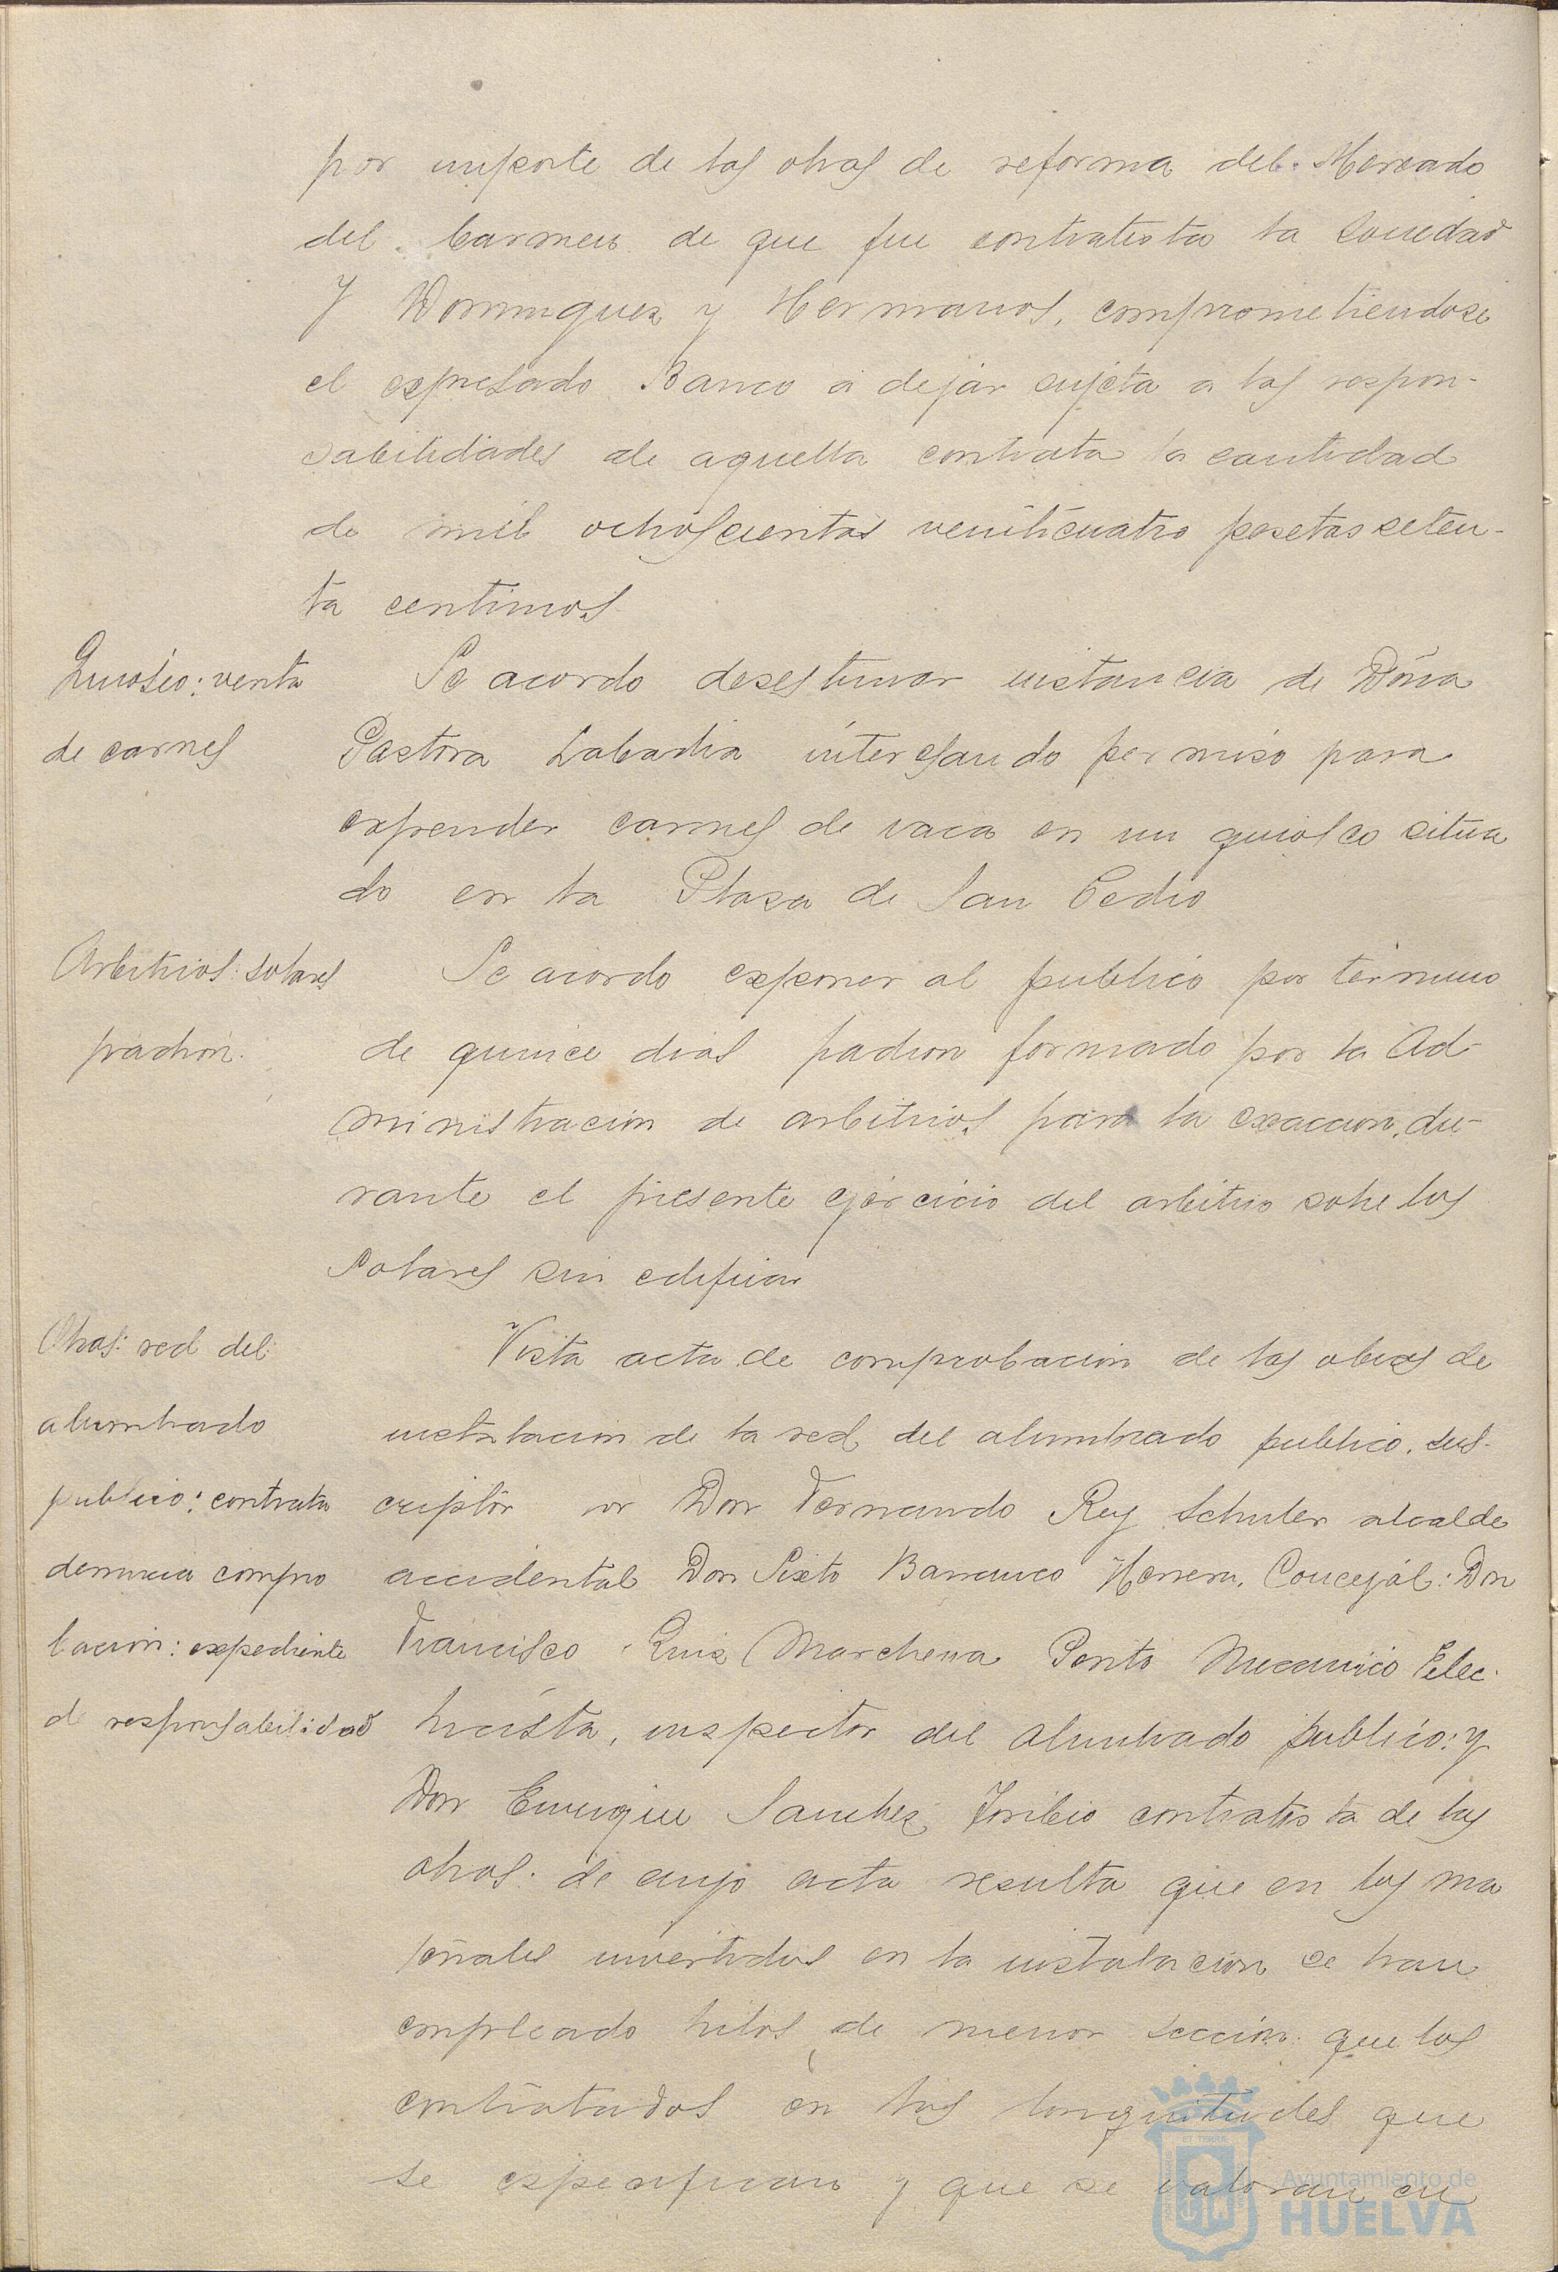 por importe de las obras de reforma del Mercado
del Carmen de que fue contratista la Sociedad
J Dominguez y Hermanos, comprometiendose
el expresado Banco a dejar sujeta a las respon-
sabilidades de aquella contrata la cantidad
de mil ochoscientas veinticuatro pesetas seten-
ta centimos
Quiosco: venta
de carnes
Se acordo desestimar instancia de Doña
Pastora Labadia interesando permiso para
expender carnes de vaca en un quiosco situa
do en la Plaza de San Pedro
Arbitrios: solares
padron.
Se acordo exponer al publico por termino
de quince dias padron formado por la Ad-
ministracion de arbitrios para la exaccion, du-
rante el presente ejercicio del arbitrio sobre los
solares sin edificar
Obras: red del
alumbrado
publico: contrata
denuncia compro
bacion: expediente
d responsabilidad
Vista acta de comprobacion de las obras de
instalacion de la red del alumbrado publico, sus-
cripta or Don Fernando Rey Schuler alcalde
accidental Don Sixto Barranco Herrera, Concejal: Don
Francisco Ruiz Marchena Perito Mecanico Elec-
tricista, inspector del alumbrado publico: y
Don Enrique Sanchez Toribio contratista de las
obras: de cuyo acta resulta que en los ma
teriales invertidos en la instalacion se han
empleado hilos de menor seccion que los
contratados en las longuitudes que
se especifican y que se valoran en
Ayuntamiento de
HUELVA